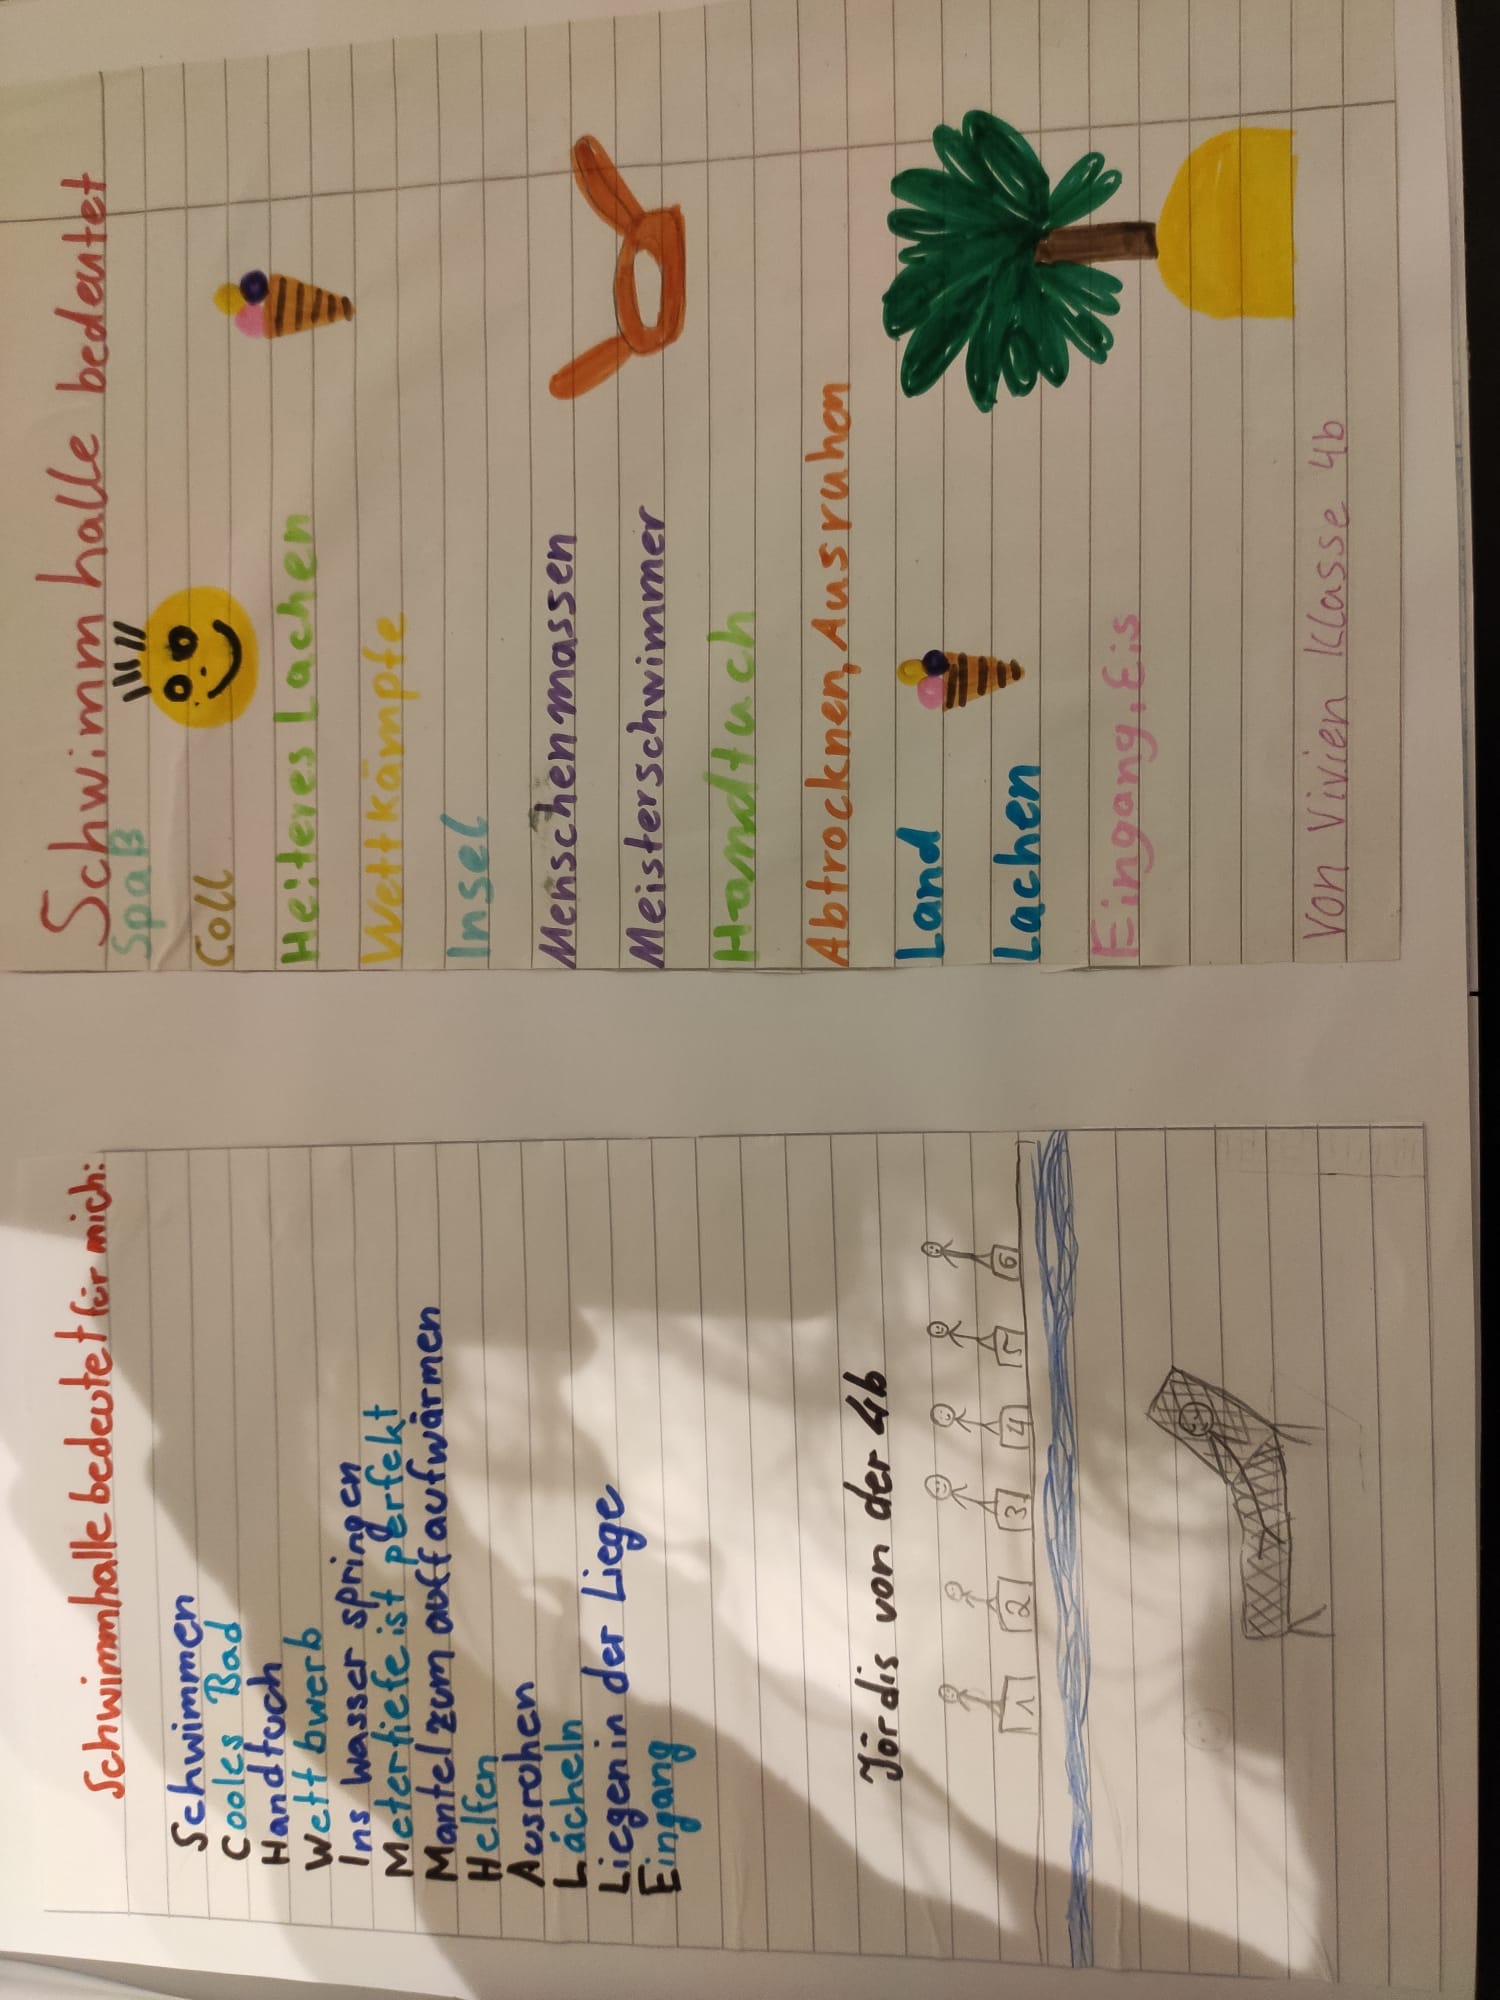 Schwimmhalle bedeutet für mich:
Schwimmen
Cooles Bad
Handtuch
Wett bwerb
Ins Wasser springen
Metertiefe ist perfekt
Mantel zum auffaufwärmen
Helfen
Ausrohen
Lächeln
Liegen in der Liege
Eingang
Jördis von der 4b
1 2 3 4 5 6
Schwimmhalle bedeutet
Spaß
Coll
Heiteres Lachen
Wettkämpfe
Insel
Menschenmassen
Meisterschwimmer
Handtuch
Abtrocknen, Ausruhen
Land
Lachen
Eingang, Eis
Von Vivien Klasse 4b